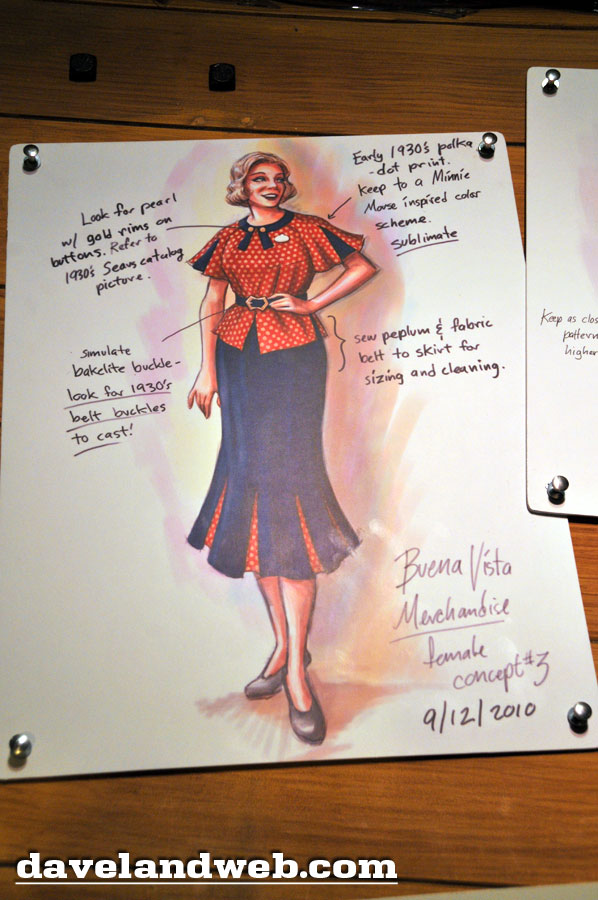 Look for pearl
w/ gold rims on
buttons. Refer to
1930's Sears catalog
picture.
Early 1930's polka
-dot print.
Keep to a Minnie
Mouse inspired color
scheme.
sublimate
simulate
bakelite buckle-
look for 1930's
belt buckles
to cast!
sew peplum & fabric
belt to skirt for
sizing and cleaning.
Keep as clos
pattern
higher
Buena Vista
Merchandise
female
concept #3
9/12/2010
davelandweb.com